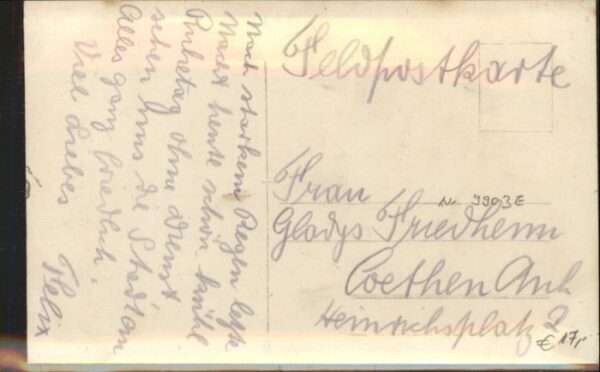 Feldpostkarte
Nach starkem Regen letzte
Nacht heute schön kühl
Ruhetag ohne Dienst
sehen uns die Stadt an
Alles ganz friedlich.
Viel Liebes
Felix
Frau
Nr. 3903E
Gladys Friedheim
Coethen Anh
Heinrichsplatz 2
€ 17,-